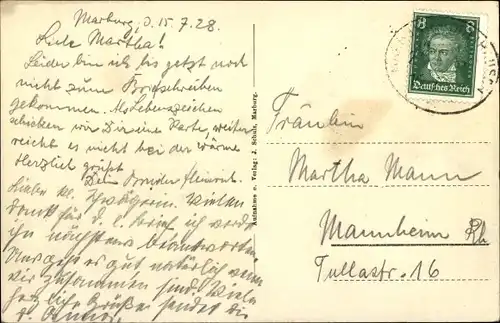 Marburg, d. 15.7.28.
Liebe Martha!
Leider bin ich bis jetzt noch
nicht zum Briefschreiben
gekommen. Als Lebenszeichen
schicken wir Dir eine Karte, weiter
reicht es nicht bei der Wärme
Herzlich grüßt
Dein Bruder Heinrich.
Liebe kl. Schwägerin. Vielen
Dank für d. l. Brief ich werde
ihn nächstens beantworten.
Uns geht es gut natürlich wenn
wir zusammen sind. Viele
herzliche Grüße sendet die
Aufnahme u. Verlag: J. Schulz, Marburg.
8 8
Deutsches Reich
Fräulein
Martha Mann
Mannheim Rh.
Tullastr. 16